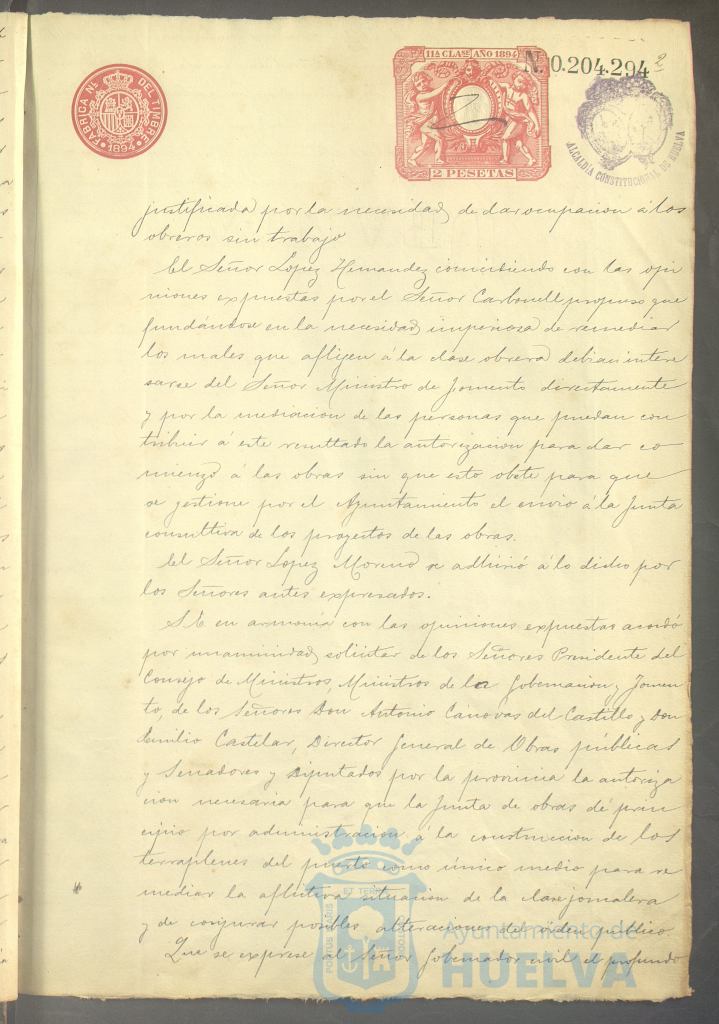 FABRICA NL. DEL TIMBRE
1894
11ª CLASE AÑO 1894
2 PESETAS
N. 0.204.294
2
ALCALDÍA CONSTITUCIONAL DE HUELVA
justificada por la necesidad de dar ocupacion á los
obreros sin trabajo
El Señor Lopez Hernandez coincidiendo con las opi
niones expuestas por el Señor Carbonell propuso que
fundándose en la necesidad imperiosa de remediar
los males que aflijen á la clase obrera debian intere
sarse del Señor Ministro de Fomento directamente
y por la mediacion de las personas que puedan con
tribuir á este resultado la autorizacion para dar co
mienzo á las obras sin que esto obste para que
se gestione por el Ayuntamiento el envio á la Junta
consultiva de los proyectos de las obras.
El Señor Lopez Moreno se adhirió á lo dicho por
los Señores antes expresados.
S.E. en armonía con las opiniones expuestas acordó
por unanimidad solicitar de los Señores Presidente del
Consejo de Ministros, Ministros de la Gobernacion y Fomen
to, de los Señores Don Antonio Cánovas del Castillo y Don
Emilio Castelar, Director General de Obras públicas
y Senadores y Diputados por la provincia la autoriza
cion necesaria para que la Junta de obras dé prin
cipio por administracion á la construccion de los
terraplenes del puerto como único medio para re
mediar la aflictiva situacion de la clase jornalera
y de conjurar posibles alteraciones del orden publico.
Que se exprese al Señor Gobernador civil el profundo
PORTUS MARIS ET TERRAE CUSTODIA
Ayuntamiento de
HUELVA